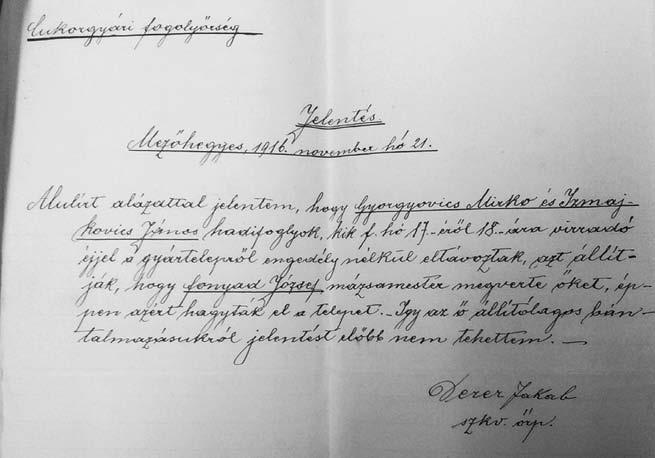 Cukorgyári fogolyőrség
Jelentés
Mezőhegyes, 1916. november hó 21.
Alulírt alázattal jelentem, hogy Gyorgyovics Mirko és Izmaj-
kovics János hadifoglyok, kik f. hó 17.-éről 18.-ára virradó
éjjel a gyártelepről engedély nélkül eltávoztak, azt állít-
ják, hogy Fonyad József mázsamester megverte őket, ép-
pen azért hagyták el a telepet. - Így az ő állítólagos bán-
talmazásukról jelentést előbb nem tehettem. -
Dezer Jakab
szkv. őrp.